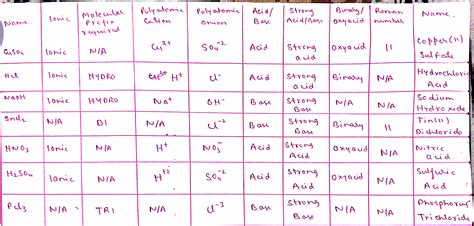 Name Ionic Molecular Prefix required Polyatomic Cation Polyatomic anion Acid/Base Strong Acid/Base Binary/oxyacid Roman number Name
CuSO4 Ionic N/A Cu2+ SO4-2 Acid Strong acid Oxyacid II Copper(II) Sulfate
Hcl Ionic HYDRO H+ Cl- Acid Strong acid Binary N/A Hydrochloric Acid
NaOH Ionic HYDRO Na+ OH- Base Strong Base N/A N/A Sodium Hydroxide
N/A DI N/A Cl-2 Base Strong Base Binary II Tin(II) Dichloride
HNO3 Ionic N/A H+ NO3- Acid Strong acid Oxyacid N/A Nitric acid
H2SO4 Ionic N/A H+2 SO4-2 Acid Strong acid Oxyacid N/A Sulfuric Acid
Pcl3 N/A TRI N/A Cl-3 Base Strong Base N/A N/A Phosphorus Trichloride